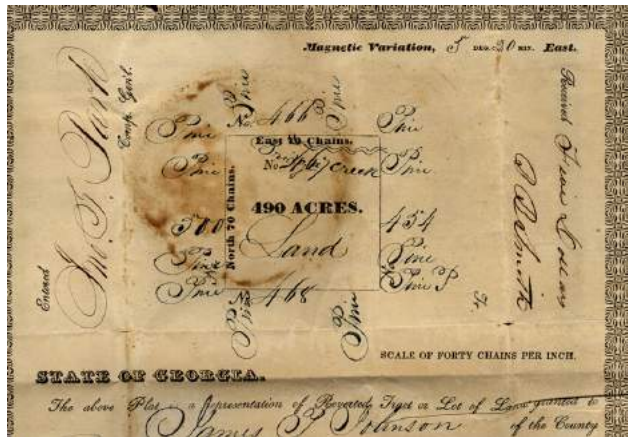 Magnetic Variation, 5 DEG. 30 MIN. East.
Entered
Jno. G. Park
Compt. Genl.
Received Five Dollars
P B Smith
Tr.
Pine
Pine
No. 466
Pine
Pine
Pine
East 70 Chains.
No. 467 Creek
Pine
North 70 Chains.
490 ACRES.
500
Land
454
Pine
Pine
Pine
Pine P
No. 468
Pine
Pine
SCALE OF FORTY CHAINS PER INCH.
STATE OF GEORGIA.
The above Plat is a Representation of Reverted Tract or Lot of Land granted to
James Johnson of the County